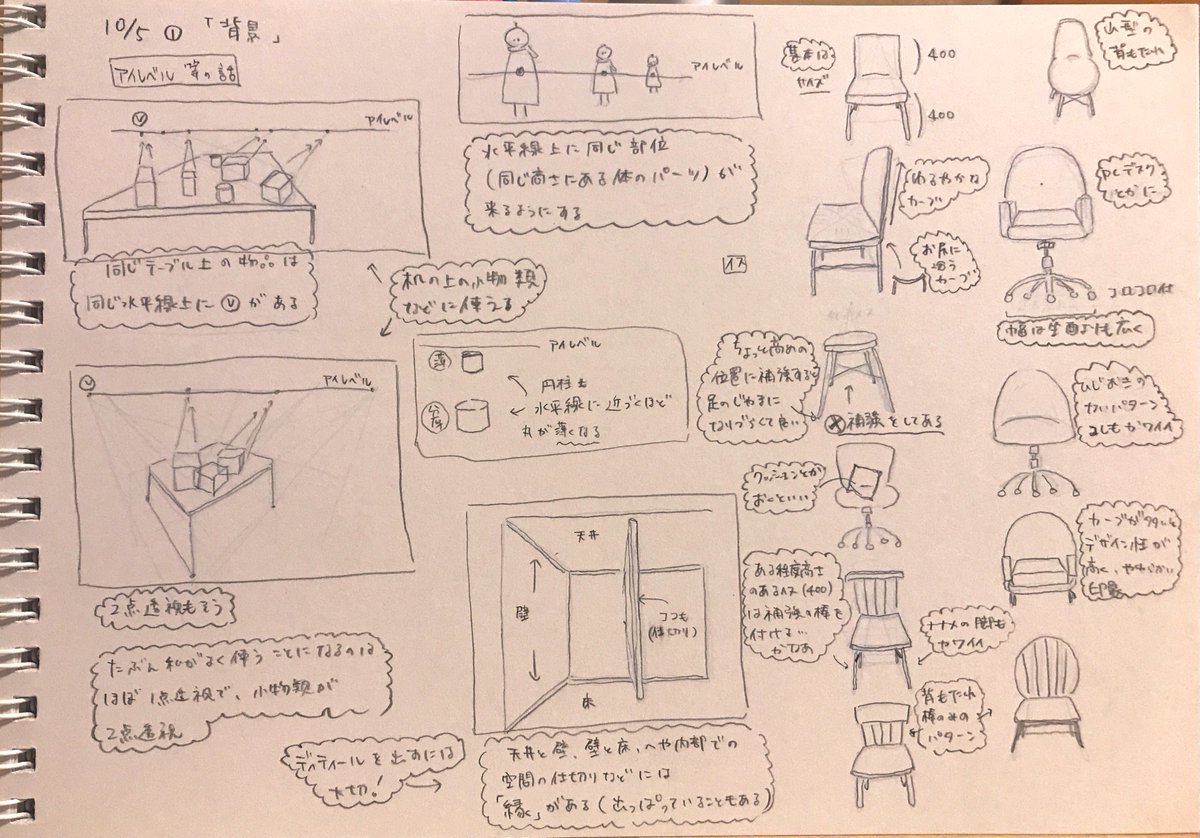 10/5 ① 「背景」
アイレベル 等の話
Ⓥ
アイレベル
同じテーブル上の物。。は
同じ水平線上にⓋがある
アイレベル
水平線上に同じ部位
(同じ高さにある体のパーツ)が
来るようにする
机の上の小物類
などに使える
Ⓥ
アイレベル
2点透視もそう
たぶん私がよく使うことになるのは
ほぼ1点透視で、小物類が
2点透視
アイレベル
薄
円柱も
水平線に近づくほど
丸が薄くなる
天井
壁
ココも
(仕切り)
床
ディティールを出すには
大切!
天井と壁、壁と床、へや内部での
空間の仕切りなどには
「縁」がある(出っぱっていることもある)
イス
基本は
サイズ
400
400
山型の
背もたれ
ゆるやかな
カーブ
お尻に
沿う
カーブ
PCデスク
とかに
コロコロ付
幅は座面よりも広く
ちょっと高めの
位置に補強すると
足のじゃまに
なりづらくて良い
補強をしてある
ひじおきの
ないパターン
よしもカワイイ
クッションとか
おくといい
カーブが多いと
デザイン性が
高く、やわらかい
印象
ある程度高さ
のあるイス(400)
は補強の棒を
付ける…
かなあ
ナナメの脚も
カワイイ
背もたれ
棒のみの
パターン